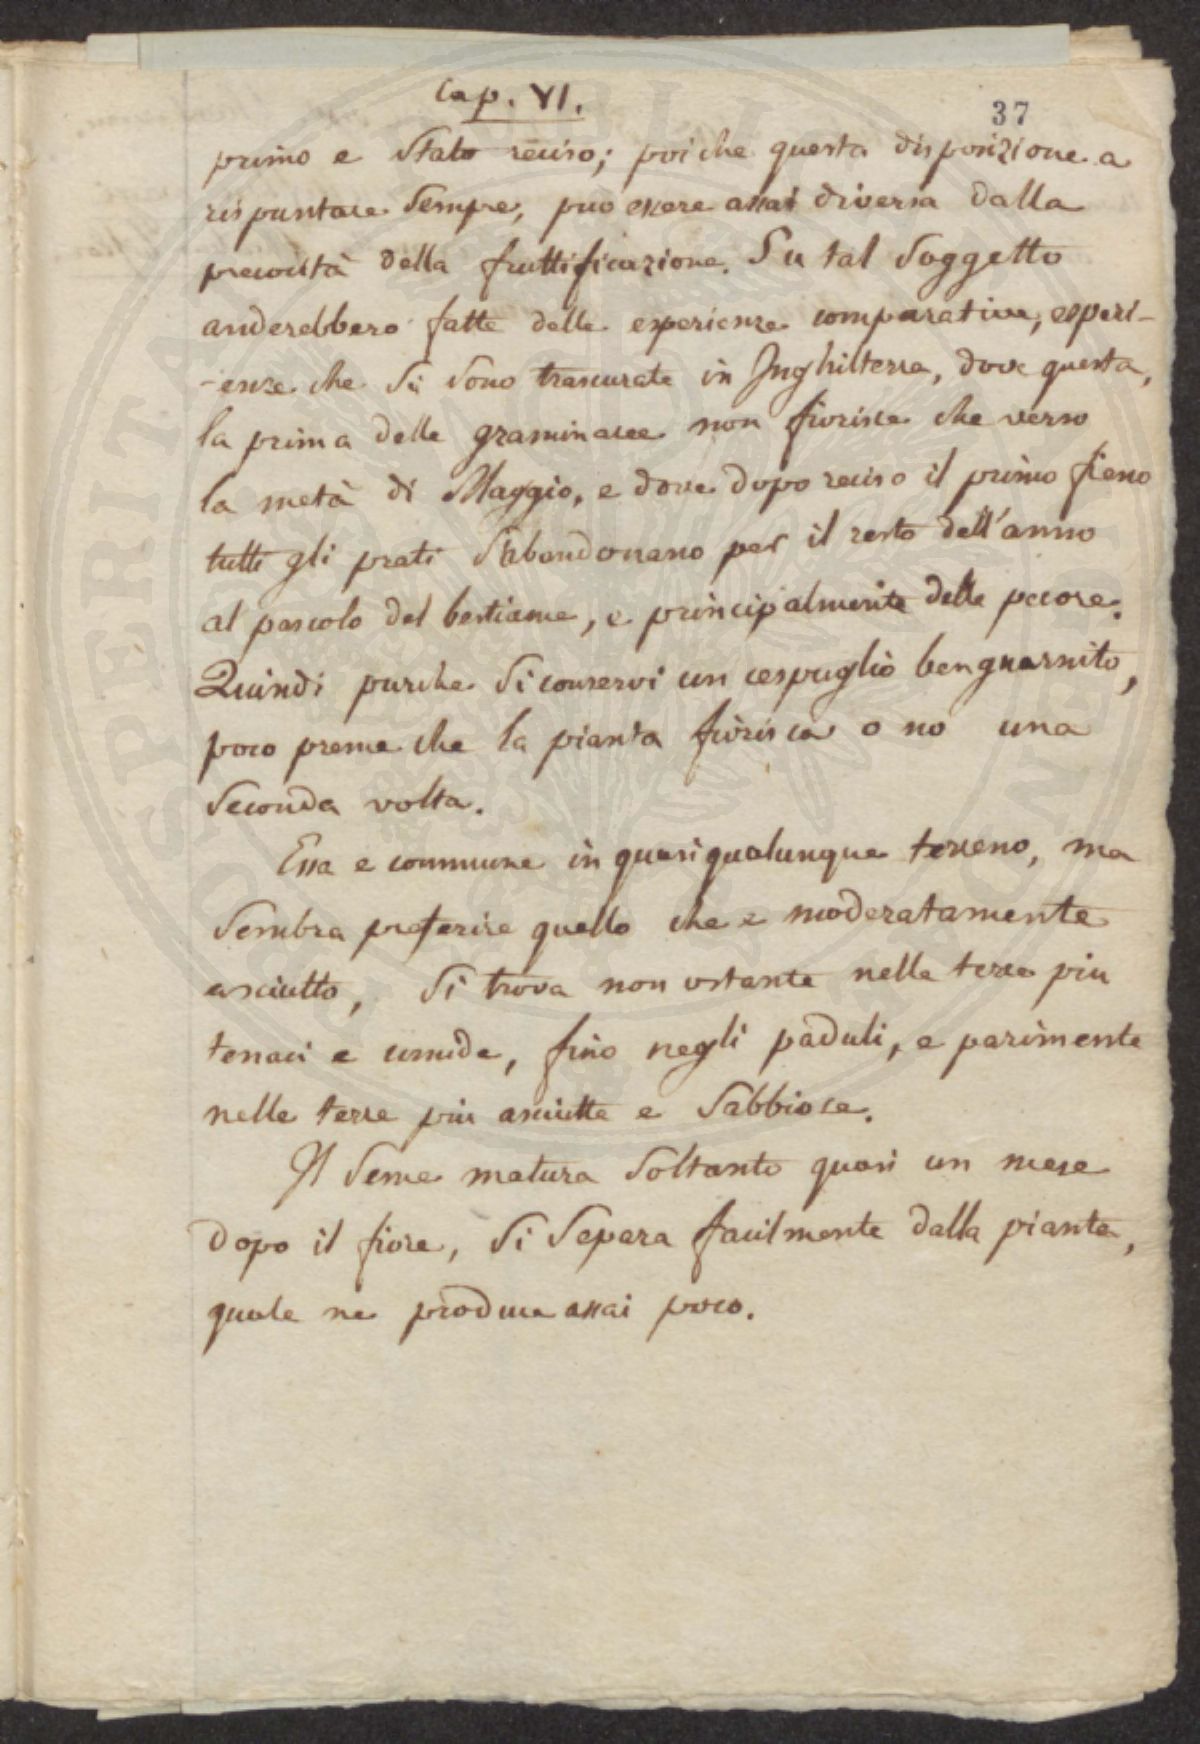 Cap. VI.
37
primo e Stato reciso; poiche questa disposizione a
rispuntare Sempre, puo essere assai diversa dalla
precocità della fruttificazione. Su tal Soggetto
anderebbero fatte delle esperienze comparative, esperi-
-enze che Si Sono trascurate in Inghilterra, dove questa,
la prima delle graminacee non fiorisce che verso
la metà di Maggio, e dove dopo reciso il primo fieno
tutti gli prati S'abandonano per il resto dell'anno
al pascolo del bestiame, e principalmente delle pecore.
Quindi purche Si conservi un cespuglio benguarnito,
poco preme che la pianta fiorisca o no una
Seconda volta.
Essa e commune in quasi qualunque terreno, ma
Sembra preferire quello che e moderatamente
asciutto, Si trova non ostante nelle terre piu
tenaci e umide, fino negli paduli, e parimente
nelle terre piu asciutte e Sabbiose.
Il Seme matura Soltanto quasi un mese
dopo il fiore, Si Separa facilmente dalla pianta,
quale ne produce assai poco.
PROSPERITATI PUBLICAE AUGENDAE